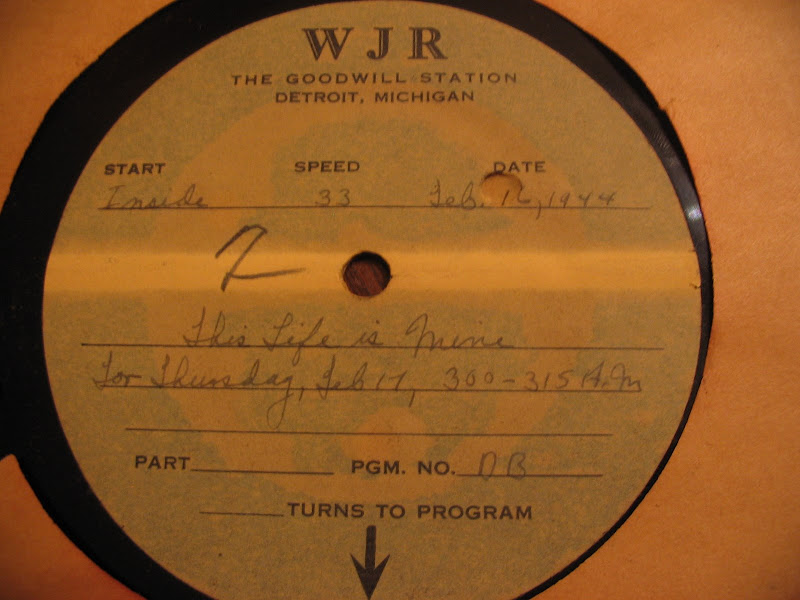 WJR
THE GOODWILL STATION
DETROIT, MICHIGAN
START SPEED DATE
Inside 33 Feb. 16, 1944
2
This Life is Mine
For Thursday, Feb 17, 300-315 A.M
PART PGM. NO. DB
TURNS TO PROGRAM